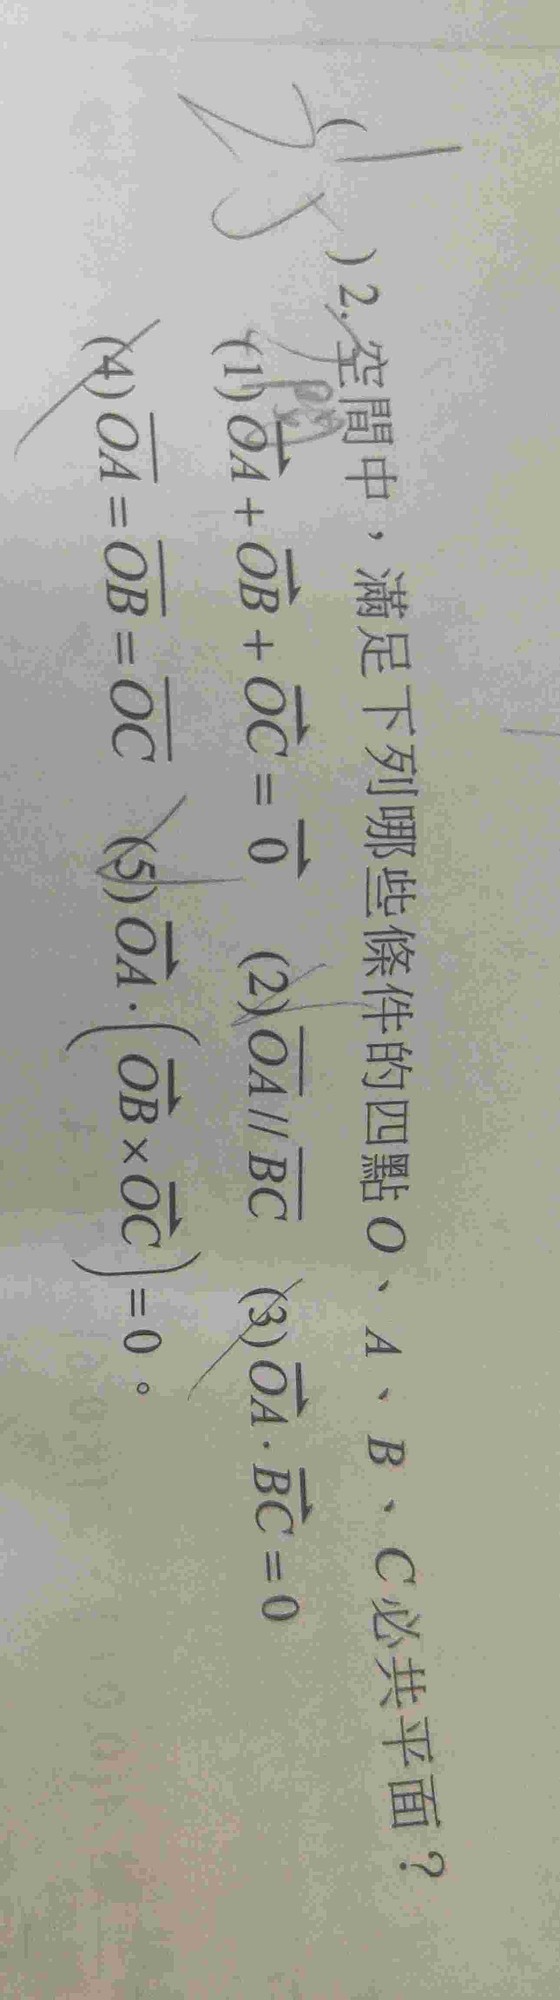 ( )2.空間中，滿足下列哪些條件的四點O、A、B、C必共平面？
(1)$\overrightarrow{OA}+\overrightarrow{OB}+\overrightarrow{OC}=\overrightarrow{0}$ (2)$\overline{OA}//\overline{BC}$ (3)$\overrightarrow{OA}\cdot\overrightarrow{BC}=0$
(4)$\overline{OA}=\overline{OB}=\overline{OC}$ (5)$\overrightarrow{OA}\cdot(\overrightarrow{OB}\times\overrightarrow{OC})=0$。